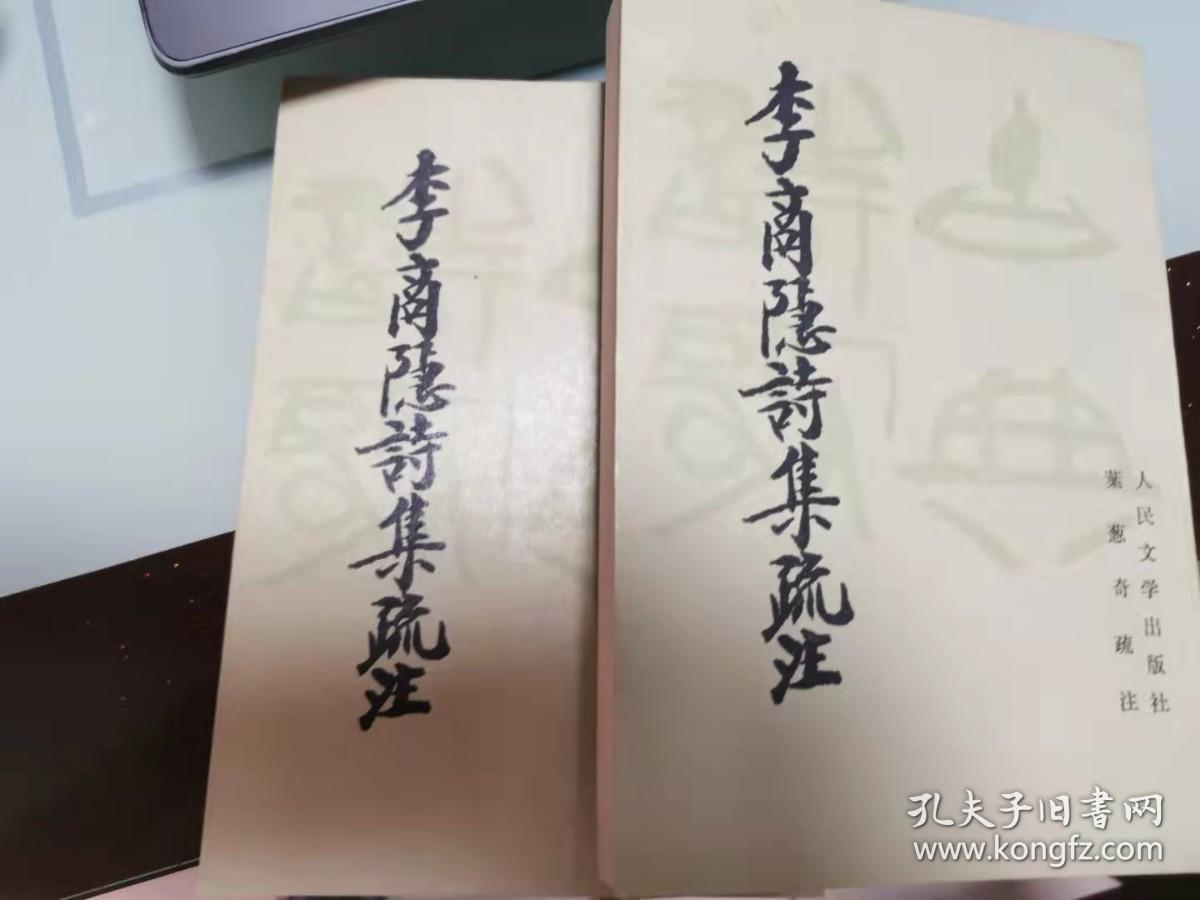 李商隱詩集疏注
李商隱詩集疏注
人民文学出版社
葉葱奇疏注
孔夫子旧書网
www.kongfz.com